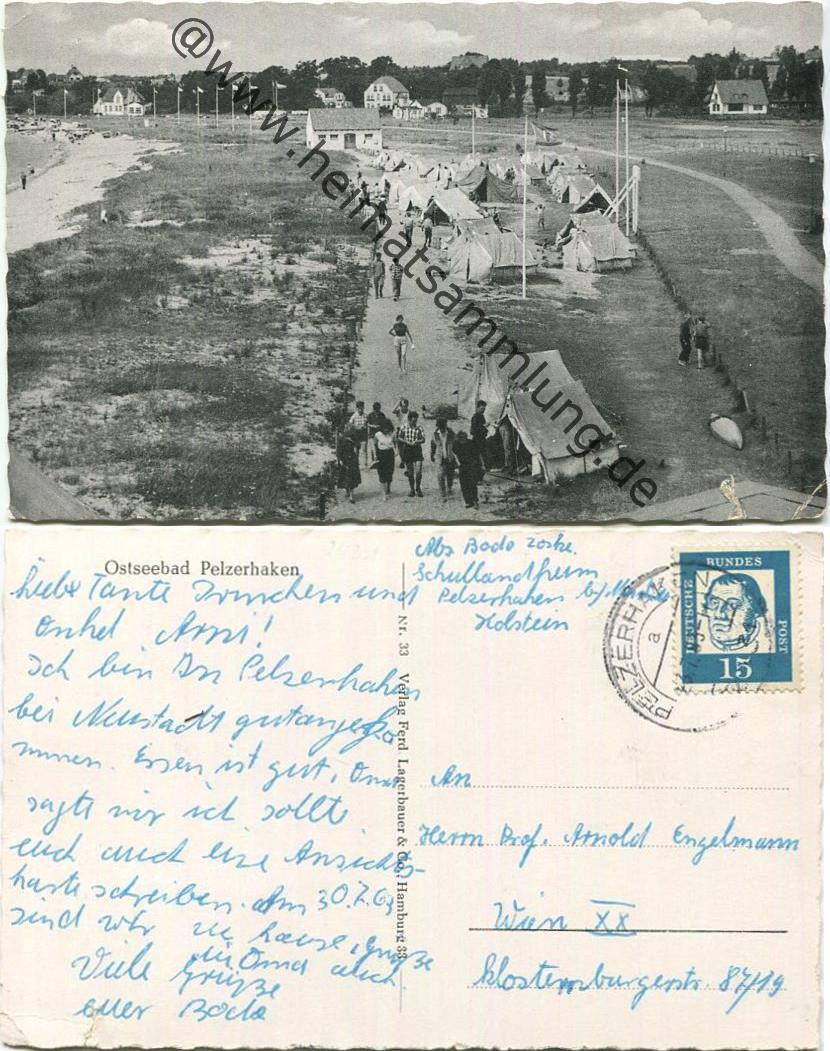 @www.heimatsammlung.de
Ostseebad Pelzerhaken
Liebe Tante Irmchen und
Onkel Arni!
Ich bin In Pelzerhaken
bei Neustadt gutangeko
mmen. Essen ist gut. Oma
sagte mir ich sollte
euch auch eine Ansichts-
karte schreiben. Am 30.7.63
sind wir zu hause, grüße
die Oma auch.
Viele Grüße
euer Bodo
Nr. 33 Verlag Ferd. Lagerbauer & Co., Hamburg 33
Abs Bodo
Schullandheim
Pelzerhaken b/
Holstein
PELZERHAKEN
a
DEUTSCHE
BUNDES
POST
15
An
Herrn Prof. Arnold Engelmann
Wien XX
Klosterneuburgerstr. 87/19